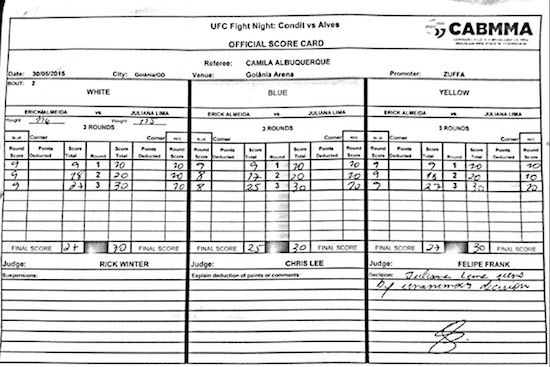 UFC Fight Night: Condit vs Alves
CABMMA
OFFICIAL SCORE CARD
Referee: CAMILA ALBUQUERQUE
Date: 30/05/2015 City: Goiânia/GO Venue: Goiânia Arena Promoter: ZUFFA
BOUT: 2
WHITE BLUE YELLOW
ERICK ALMEIDA vs. JULIANA LIMA ERICK ALMEIDA vs. JULIANA LIMA ERICK ALMEIDA vs. JULIANA LIMA
Weight Weight
3 ROUNDS 3 ROUNDS 3 ROUNDS
BLUE Corner Corner RED BLUE Corner Corner RED BLUE Corner Corner RED
Round Score Points Deducted Score Total Round Score Total Points Deducted Round Score Round Score Points Deducted Score Total Round Score Total Points Deducted Round Score Round Score Points Deducted Score Total Round Score Total Points Deducted Round Score
9 9 1 10 10 9 9 1 10 10 9 9 1 10 10
9 18 2 20 10 8 17 2 20 10 9 18 2 20 10
9 27 3 30 10 8 25 3 30 10 9 27 3 30 10
FINAL SCORE 27 30 FINAL SCORE FINAL SCORE 25 30 FINAL SCORE FINAL SCORE 27 30 FINAL SCORE
Judge: RICK WINTER Judge: CHRIS LEE Judge: FELIPE FRANK
Suspensions: Explain deduction of points or comments: Decision: Juliana Lima wins
by unanimous decision